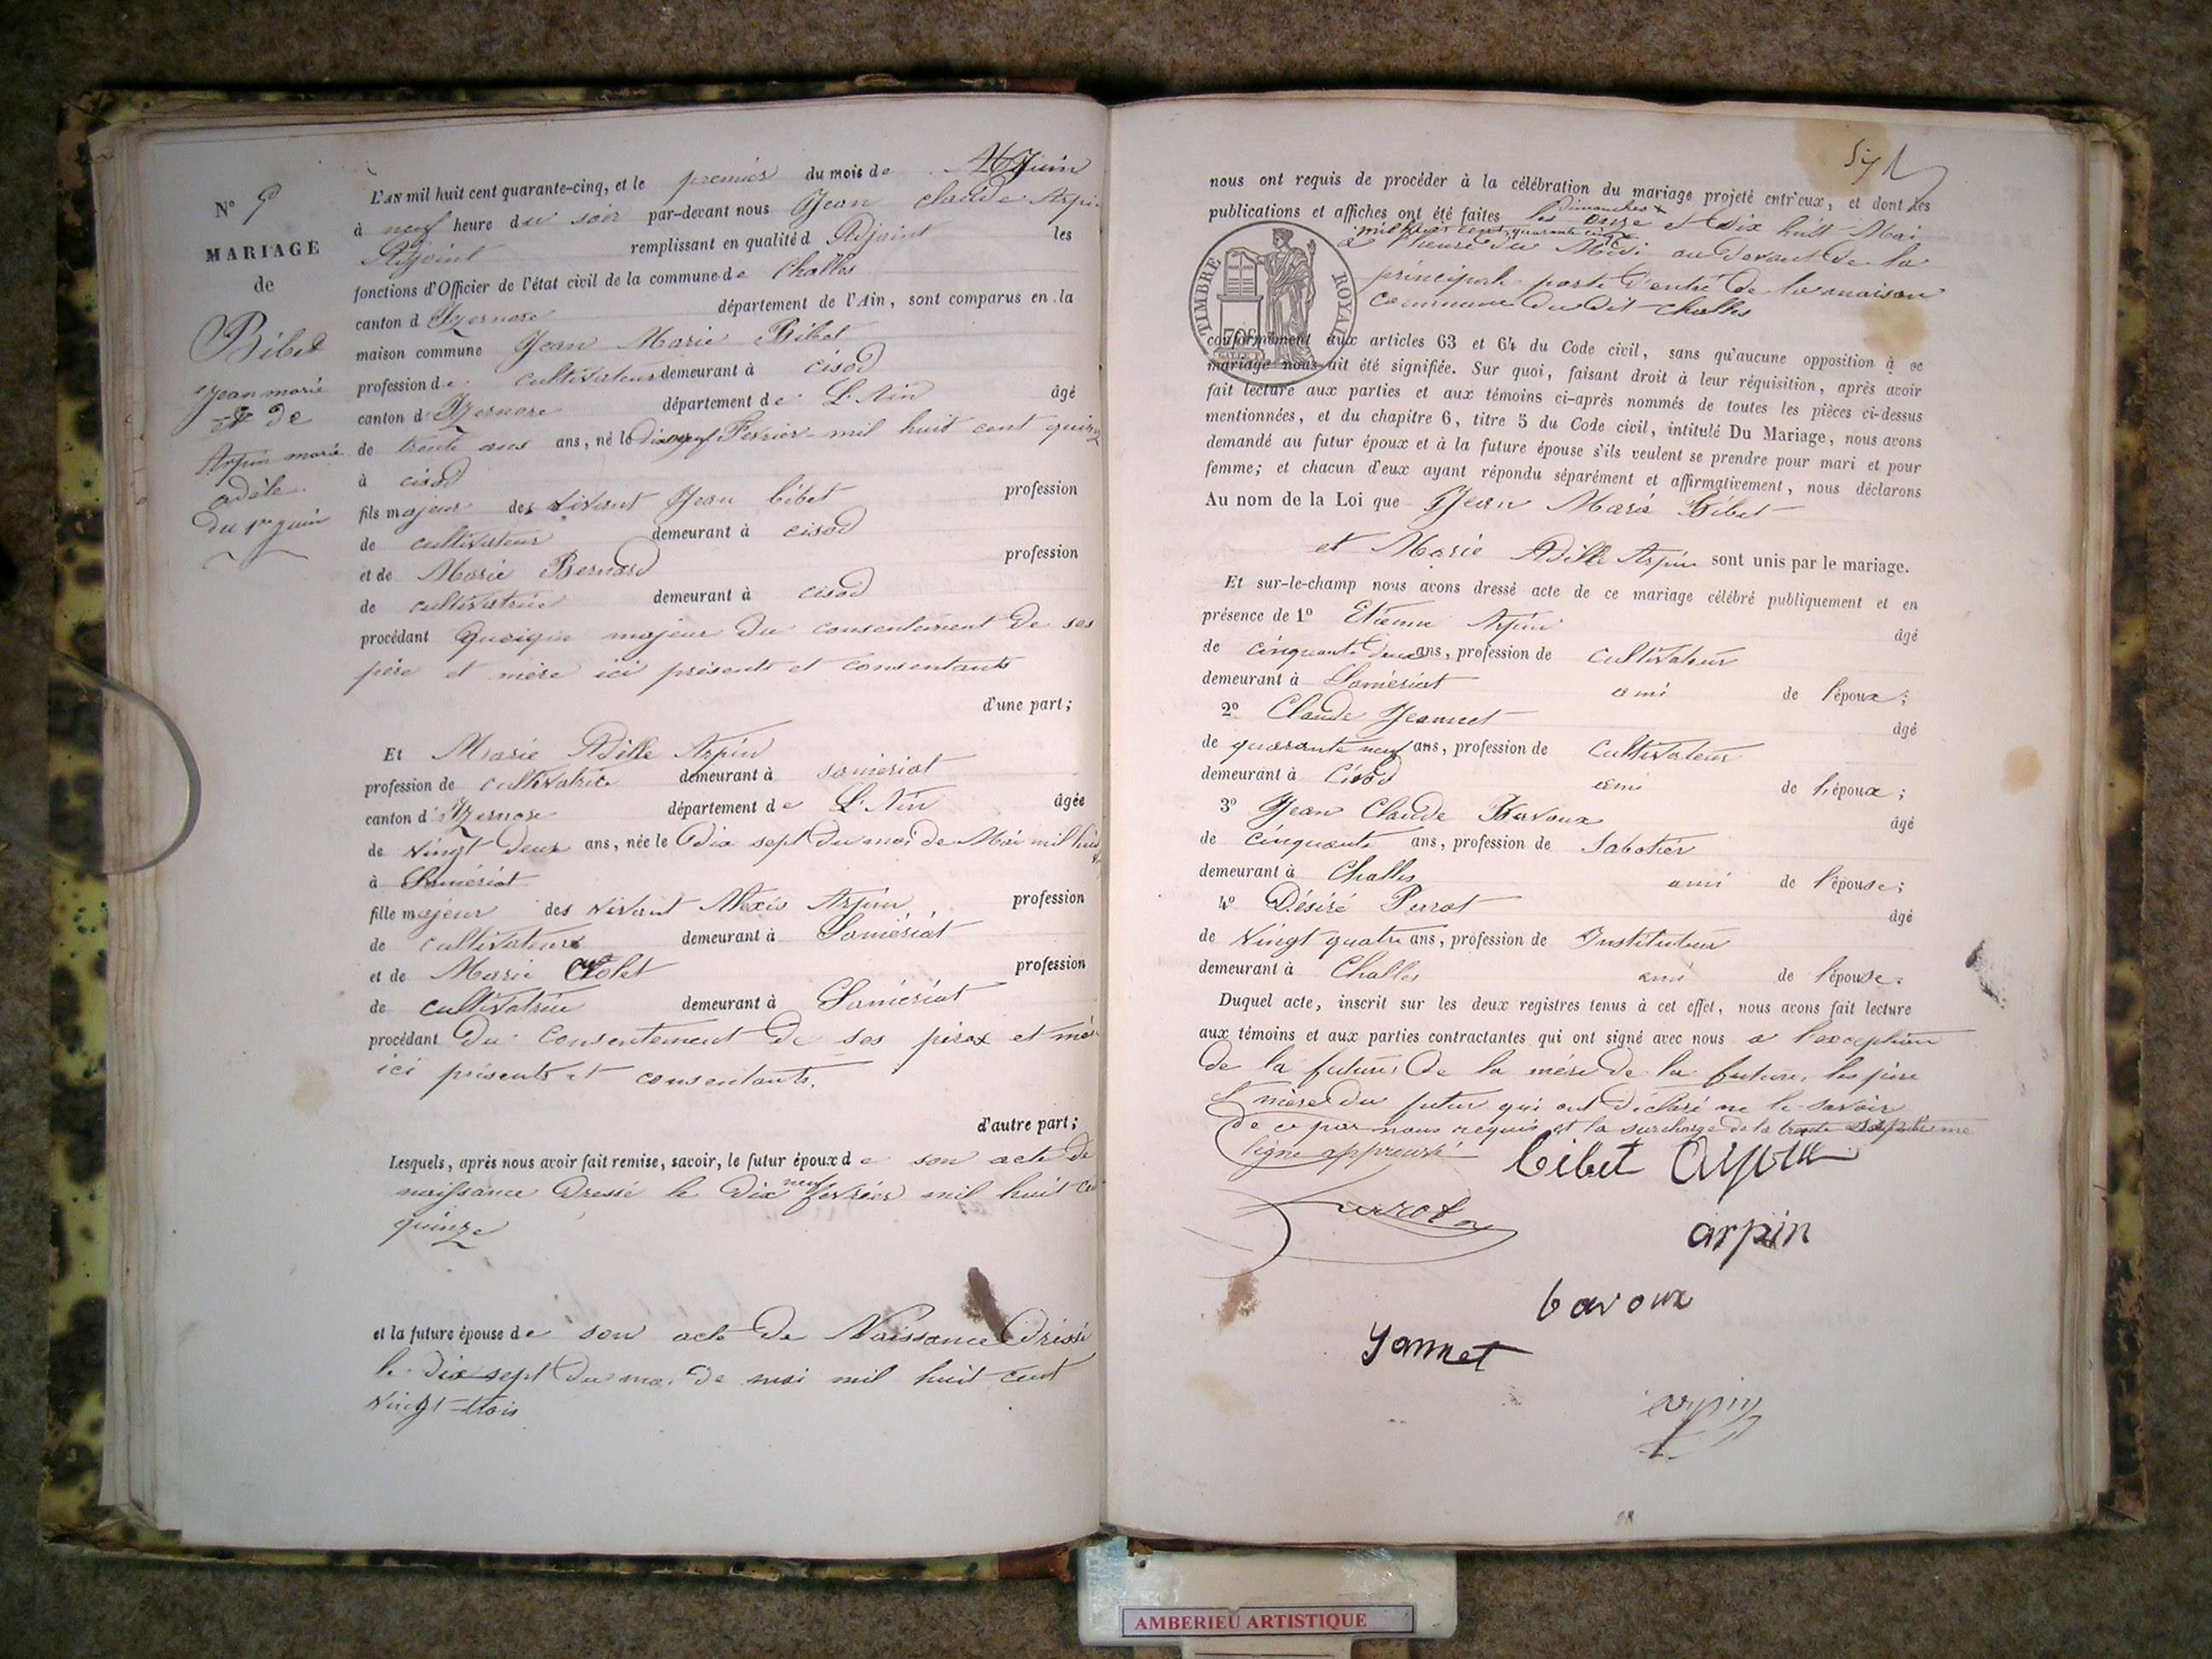 N° 9
MARIAGE
de
Bibet
Jean marie
et de
Arpin marie
adèle
du 1er juin
L'AN mil huit cent quarante-cinq, et le premier du mois de Juin
à neuf heure du soir par-devant nous Jean Claude Arpin
Adjoint remplissant en qualité d Adjoint les
fonctions d'Officier de l'état civil de la commune de Challes
canton d Izernore département de l'Ain, sont comparus en la
maison commune Jean Marie Bibet
profession de cultivateur demeurant à cisod
canton d Izernore département de L'Ain âgé
de trente ans ans, né le dix neuf Fevrier mil huit cent quinze
à cisod
fils majeur des vivant Jean bibet profession
de cultivateur demeurant à cisod
et de Marie Bernard profession
de cultivatrice demeurant à cisod
procédant quoique majeur du consentement de ses
père et mère ici présents et consentants
d'une part;
Et Marie Adille Arpin
profession de cultivatrice demeurant à samériat
canton d Izernore département de L'Ain âgée
de vingt deux ans, née le dix sept du moi de Mai mil huit
à Samériat
fille majeur des vivant Alexis Arpin profession
de cultivateur demeurant à Samériat
et de Marie profession
de cultivatrice demeurant à Samériat
procédant du consentement de ses père et mère
ici présents et consentants.
d'autre part;
Lesquels, après nous avoir fait remise, savoir, le futur époux de son acte de
naissance dressé le dix neuf fevrier mil huit cent
quinze
et la future épouse de son acte de Naissance dréssé
le dix sept du moi de mai mil huit cent
vingt-trois
nous ont requis de procéder à la célébration du mariage projeté entr'eux, et dont les
publications et affiches ont été faites les dimanches onze et dix huit Mai
mil huit cent quarante cinq
à l'heure de Midi au devant de la
principale porte d'entré de la maison
commune du dit Challes
TIMBRE ROYAL
70c
conformément aux articles 63 et 64 du Code civil, sans qu'aucune opposition à ce
mariage nous ait été signifiée. Sur quoi, faisant droit à leur réquisition, après avoir
fait lecture aux parties et aux témoins ci-après nommés de toutes les pièces ci-dessus
mentionnées, et du chapitre 6, titre 5 du Code civil, intitulé Du Mariage, nous avons
demandé au futur époux et à la future épouse s'ils veulent se prendre pour mari et pour
femme; et chacun d'eux ayant répondu séparément et affirmativement, nous déclarons
Au nom de la Loi que Jean Marie Bibet
et Marie Adille Arpin sont unis par le mariage.
Et sur-le-champ nous avons dressé acte de ce mariage célébré publiquement et en
présence de 1° Etienne Arpin âgé
de cinquante deux ans, profession de cultivateur
demeurant à Samériat ami de l'époux;
2° Claude Jeannet âgé
de quarante neuf ans, profession de cultivateur
demeurant à Cisod ami de l'époux;
3° Jean Claude Bavoux âgé
de cinquante ans, profession de Sabotier
demeurant à Challes ami de l'épouse;
4° Désiré Perrot âgé
de vingt quatre ans, profession de Instituteur
demeurant à Challes ami de l'épouse.
Duquel acte, inscrit sur les deux registres tenus à cet effet, nous avons fait lecture
aux témoins et aux parties contractantes qui ont signé avec nous a l'exception
de la future, de la mère de la future, les père
et mère du futur qui ont déclaré ne le savoir
de ce par nous requis et la surcharge de la trente septieme
ligne approuvé
bibet Arpin
Perrot
arpin
bavoux
Jannet
arpin
AMBERIEU ARTISTIQUE